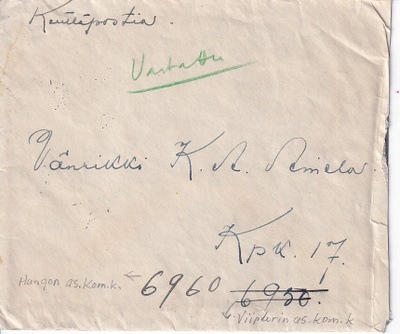 Kenttäpostia.
Vastattu
Vänrikki K. A. Amela.
Kpk. 17.
Hangon as.kom.k. ← 6960
6950.
↳ Viipurin as.kom.k